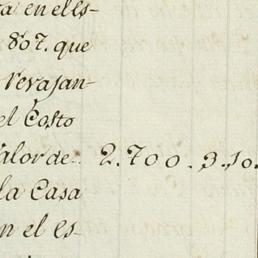 ra en el es-
807. que
revajan-
el Costo
alor de 2.700.3.10.
la Casa
n el es-